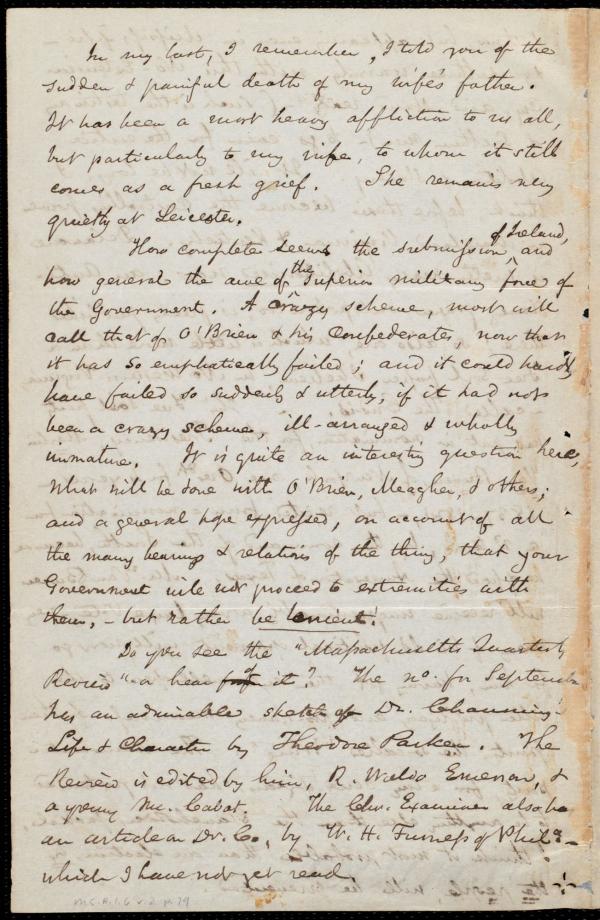 In my last, I remember, I told you of the
sudden & painful death of my wife's father.
It has been a most heavy affliction to us all,
but particularly to my wife, to whom it still
comes as a fresh grief. She remains very
quietly at Leicester.
How complete seems the submission of Ireland, and
how general the awe of the superior military force of
the Government. A crazy scheme, most will
call that of O'Brien & his Confederates, now that
it has so emphatically failed; and it could hardly
have failed so suddenly & utterly, if it had not
been a crazy scheme, ill-arranged & wholly
immature. It is quite an interesting question here,
what will be done with O'Brien, Meagher, & others;
and a general hope expressed, on account of all
the many bearings & relations of the thing, that your
Government will not proceed to extremities with
them, - but rather be lenient!
Do you see the "Massachusetts Quarterly
Review" - or hear of it? The no. for September
has an admirable sketch of Dr. Channing's
Life & Character by Theodore Parker. The
Review is edited by him, R. Waldo Emerson, &
a young Mr. Cabot. The Chr. Examiner also has
an article on Dr. C., by W. H. Furness of Phila -
which I have not yet read.
M.C.A.1.6 v.2 p.79